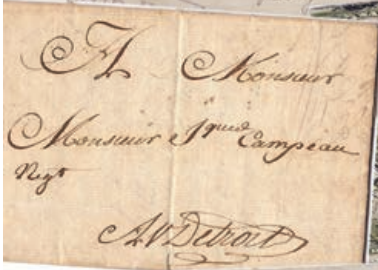 A Monsieur
Monsieur Jques Campeau
Negt
Au Detroit